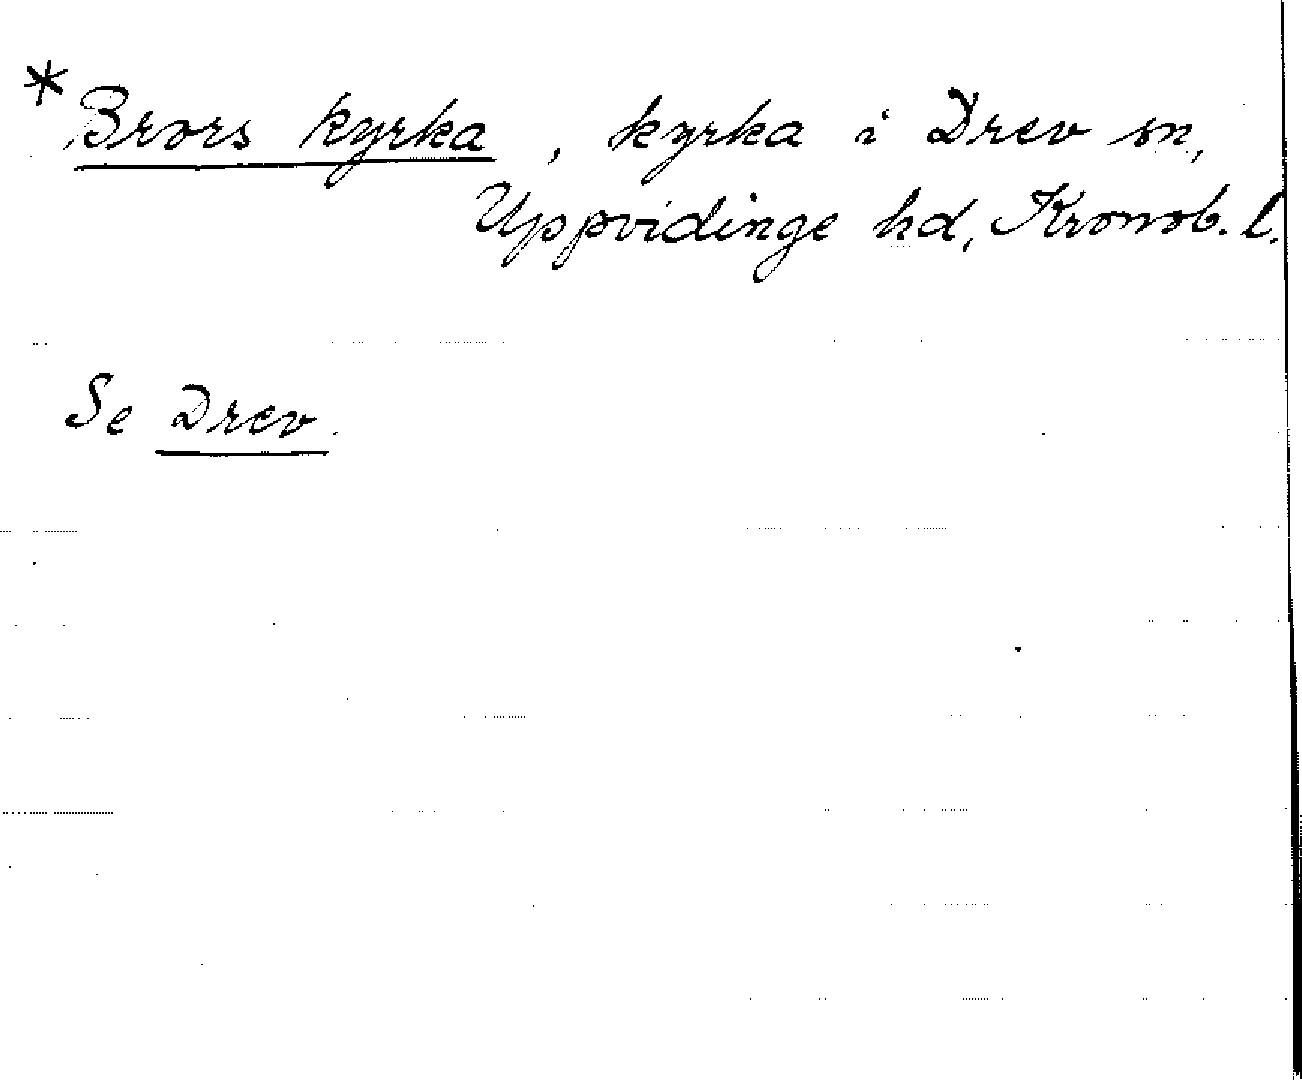 *Brors kyrka, kyrka i Drev sn,
Uppvidinge hd, Kronob. l.
Se Drev.